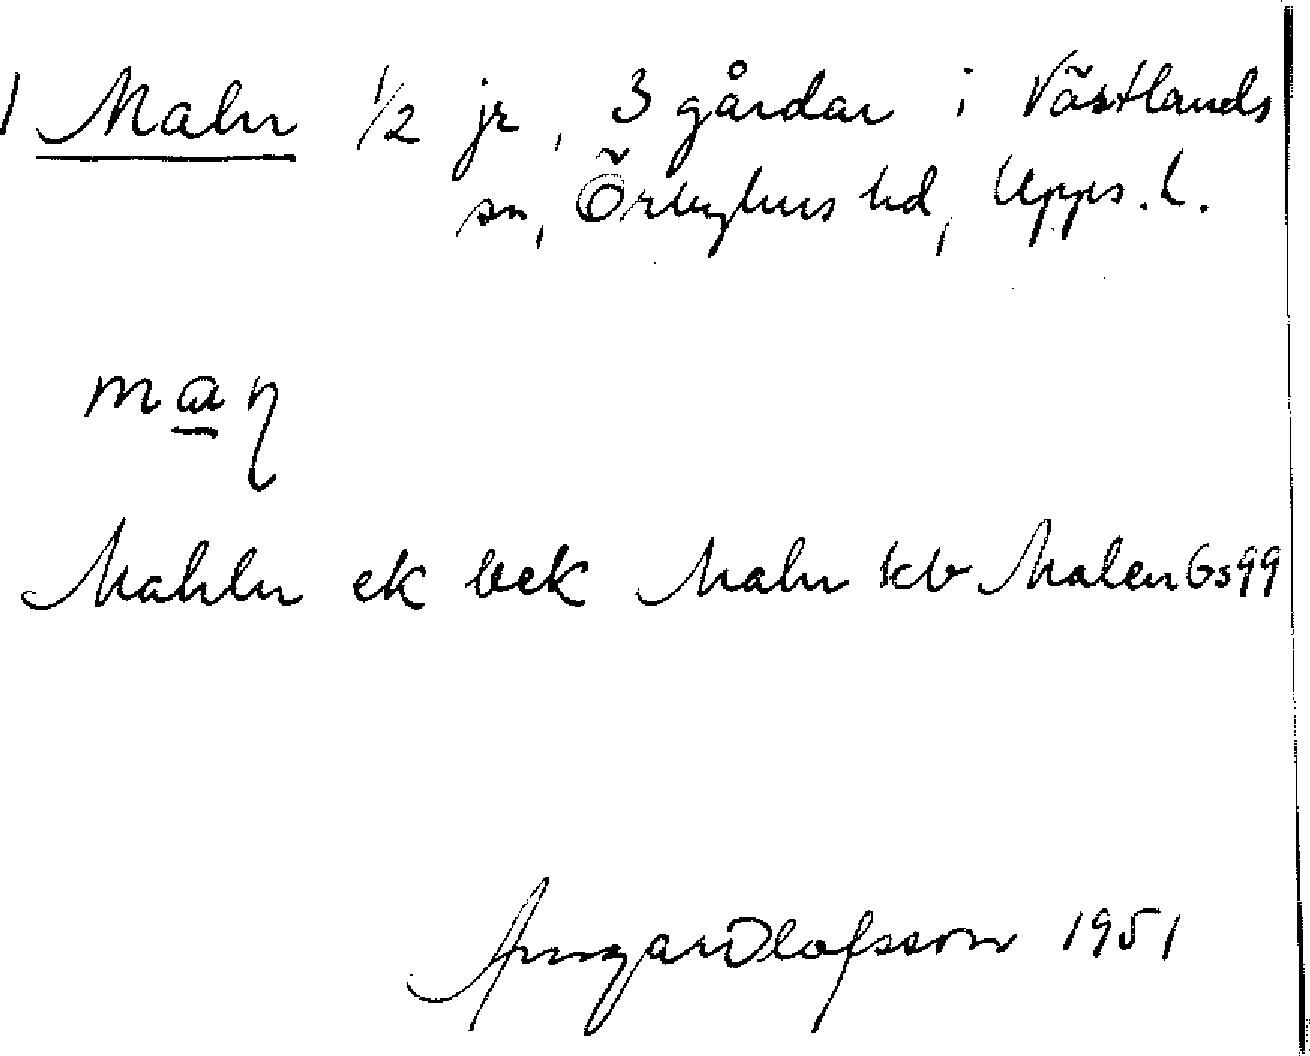 1 Maln 1/2 jr, 3 gårdar i Västlands
sn, Örbyhus hd, Upps. l.
man
Mahln ek bek Maln kb Malen Gs 99
Olofsson 1951